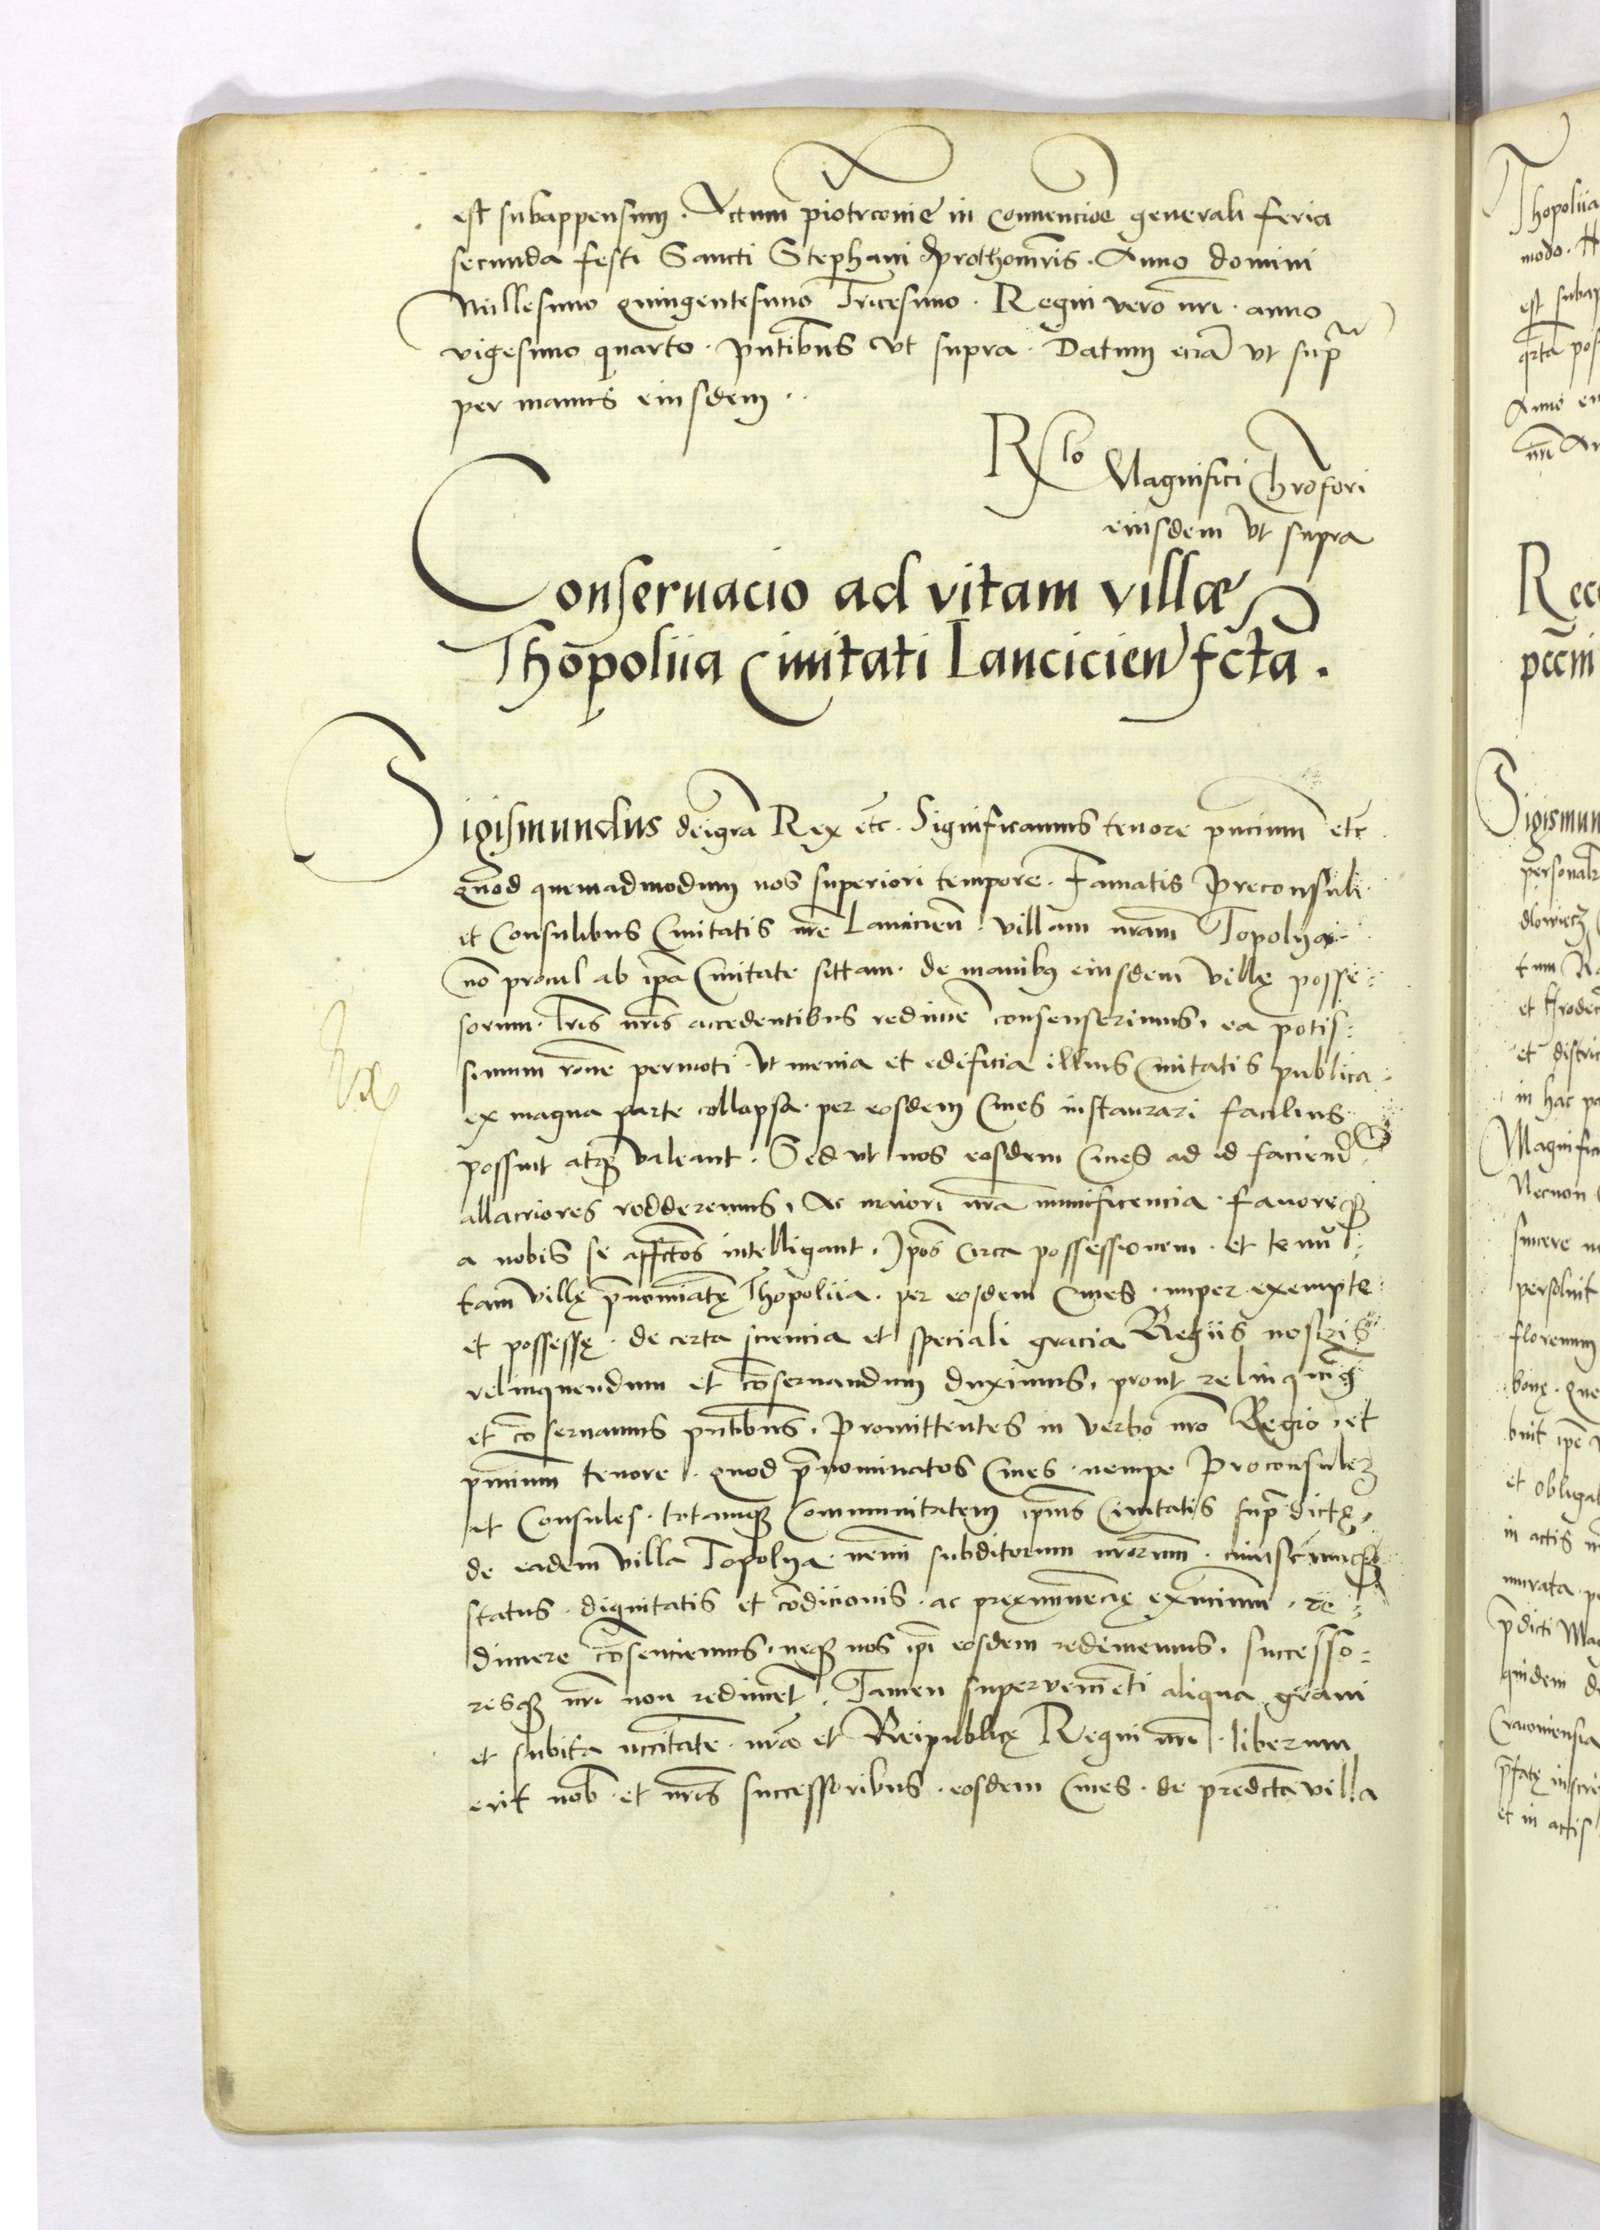 est subappensum. Actum piotrconie in Conuencioē generali feria
secunda festi Sancti Stephani Prothomr̄is. Anno domini
Millesimo quingentesimo Tricesimo. Regni vero nrī. anno
vigesimo quarto. pn̄tibus vt supra. Datum eciā vt supra
per manus eiusdem..
Rlo Magnifici Chrōfori
eiusdem vt supra
Conseruacio ad vitam villæ
Thopoliia Ciuitati Lancicien̄ fctā.
Sigismundus dei grā Rex etc. Significamus tenore pn̄cium etc
quod quemadmodum nos superiori tempore. Famatis Preconsuli
et Consulibus Ciuitatis nrē Lancicien̄. villam nrām Topolya
nō procul ab ip̄a Ciuitate sittam. de manibus eiusdem villę posse:
sorum. lr̄is nrīs accedentibus redimerē consenserimus, ea potis:
simum rōne permoti. vt menia et edificia illius Ciuitatis publica.
ex magna parte collapsa. per eosdem Ciues instaurari facilius
possint atqꝫ valeant. Sed vt nos eosdem Ciues ad id faciend̄
allacriores redderemus, Ac maiori nrā munificencia. fauoreqꝫ
a nobis se affectos intelligant. Ip̄os circa possessionem. et tenu:
tam villę p̄nominatę Thopoliia. per eosdem Ciues. nuper exempte
et possessę. de certa sciencia et speciali gracia Regiis nostris
relinquendum et cōseruandum duximus, prout relinquimꝰ
et cōseruamus pn̄tibus, Promittentes in verbo nrō Regio, et
pn̄cium tenore. quod p̄nominatos Ciues. nempe Proconsulem
et Consules. totamqꝫ Communitatem ip̄ius Ciuitatis supradictę,
de eadem villa Topolya. nemi subditorum nrōrum. cuiuscumqꝫ
status. dignitatis et cōdicionis. ac preeminencię existencium. re:
dimere cōsenciemus, neqꝫ nos ip̄i eosdem redimemus, successo:
resqꝫ nrī non rediment. Tamen superuenienti aliqua graui
et subita nccitate. nrā et Reipublicę Regni nrī. liberum
erit nob̄. et nrīs successoribus. eosdem Ciues. de predcta villa